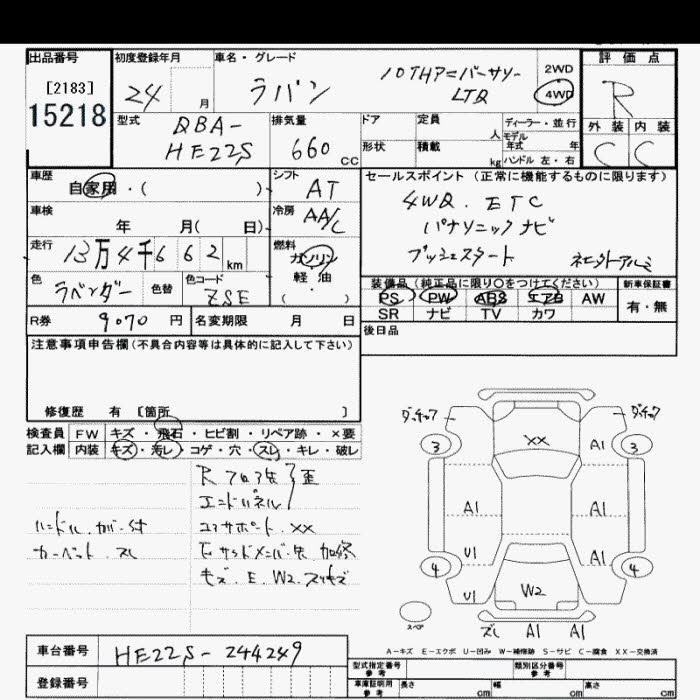 出品番号
[2183]
15218
初度登録年月
24 月
車名・グレード
ラパン
10THアニバーサリー
LTD
2WD
4WD
評価点
R
外装 内装
C C
型式
DBA-
HE22S
排気量
660 CC
ドア
定員 人
ディーラー・並行
モデル
年式 年
形状
積載 kg
ハンドル 左・右
車歴
自家用・( )
シフト
AT
車検
年 月( 日)
冷房
AA/C
走行
13万4千662km
燃料
ガソリン
軽・油
( )
色
ラベンダー
色替
色コード
ZSE
R券 9070 円
名変期限 月 日
セールスポイント (正常に機能するものに限ります)
4WD. ETC
パナソニックナビ
プッシュスタート
装備品 (純正品に限り○をつけてください)
PS PW ABS エアB AW
SR ナビ TV カワ
新車保証書
有・無
後日品
注意事項申告欄 (不具合内容等は具体的に記入して下さい)
修復歴 有 [箇所 ]
検査員
記入欄
FW キズ・飛石・ヒビ割・リペア跡・×要
内装 キズ・汚レ・コゲ・穴・スレ・キレ・破レ
エンドパネル
コアサポート. XX
ハンドル
カーペット. スレ
キズ. E. W2.
XX
A1
3
3
A1
A1
U1
A1
4
4
U1
W2
A1 A1
スペア
A-キズ E-エクボ U-凹み W-補修跡 S-サビ C-腐食 XX-交換済
車台番号
HE22S-244249
登録番号
型式指定番号
参考
類別区分番号
参考
車庫証明用
参考
長さ cm
幅 cm
高さ cm